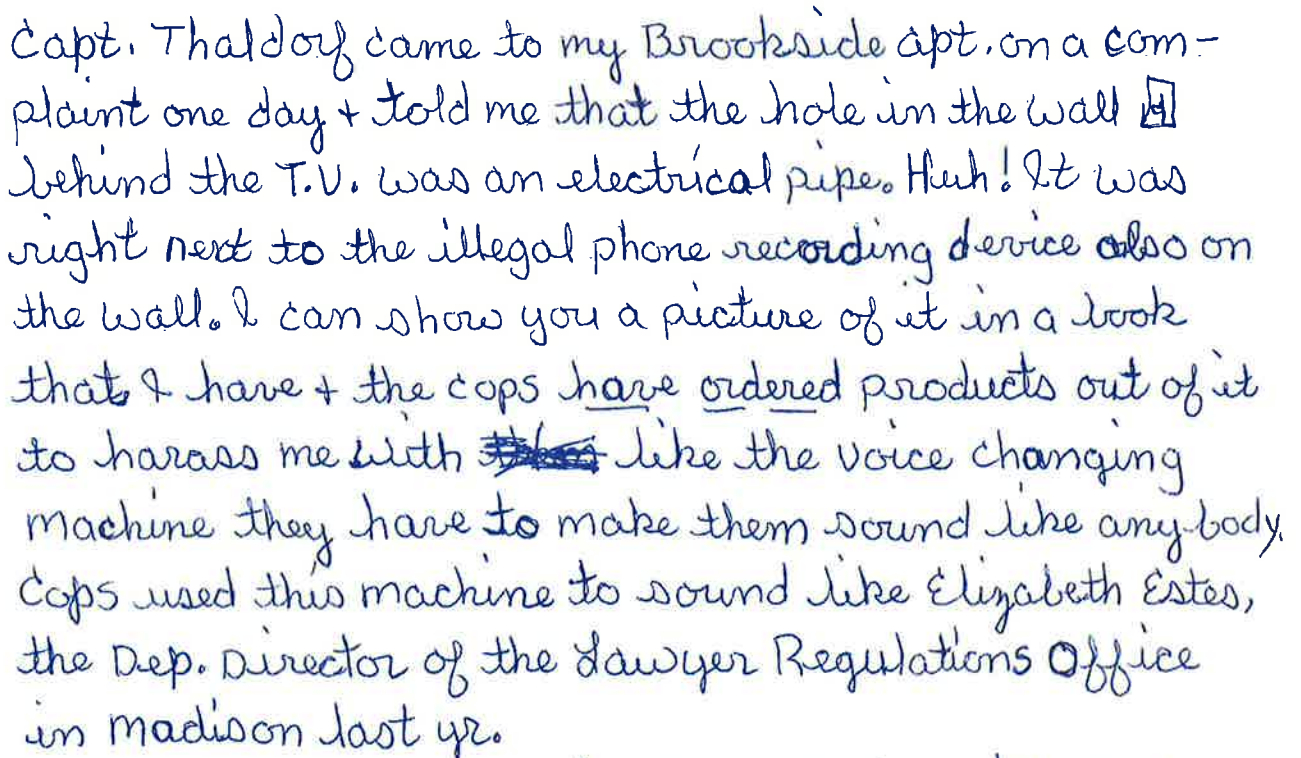 Capt. Thaldorf came to my Brookside apt. on a com-
plaint one day + told me that the hole in the wall
behind the T.V. was an electrical pipe. Huh! It was
right next to the illegal phone recording device also on
the wall. I can show you a picture of it in a book
that I have + the cops have ordered products out of it
to harass me with like the voice changing
machine they have to make them sound like any-body.
Cops used this machine to sound like Elizabeth Estes,
the Dep. Director of the Lawyer Regulations Office
in Madison last yr.